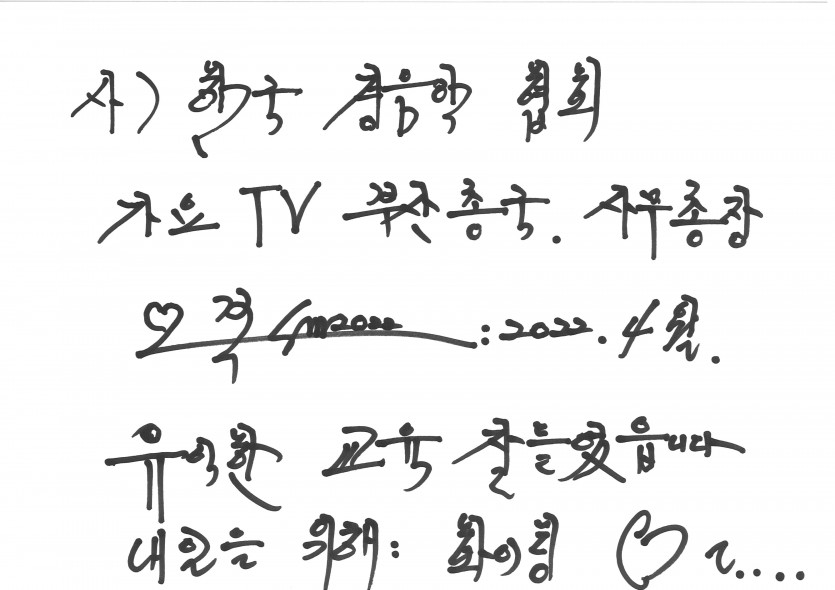 사) 한국 경음악 협회
가요 TV 부천총국. 사무총장
: 2022. 4월.
유익한 교육 잘 들었읍니다
내일을 위해: 화이팅 ♡ ~....